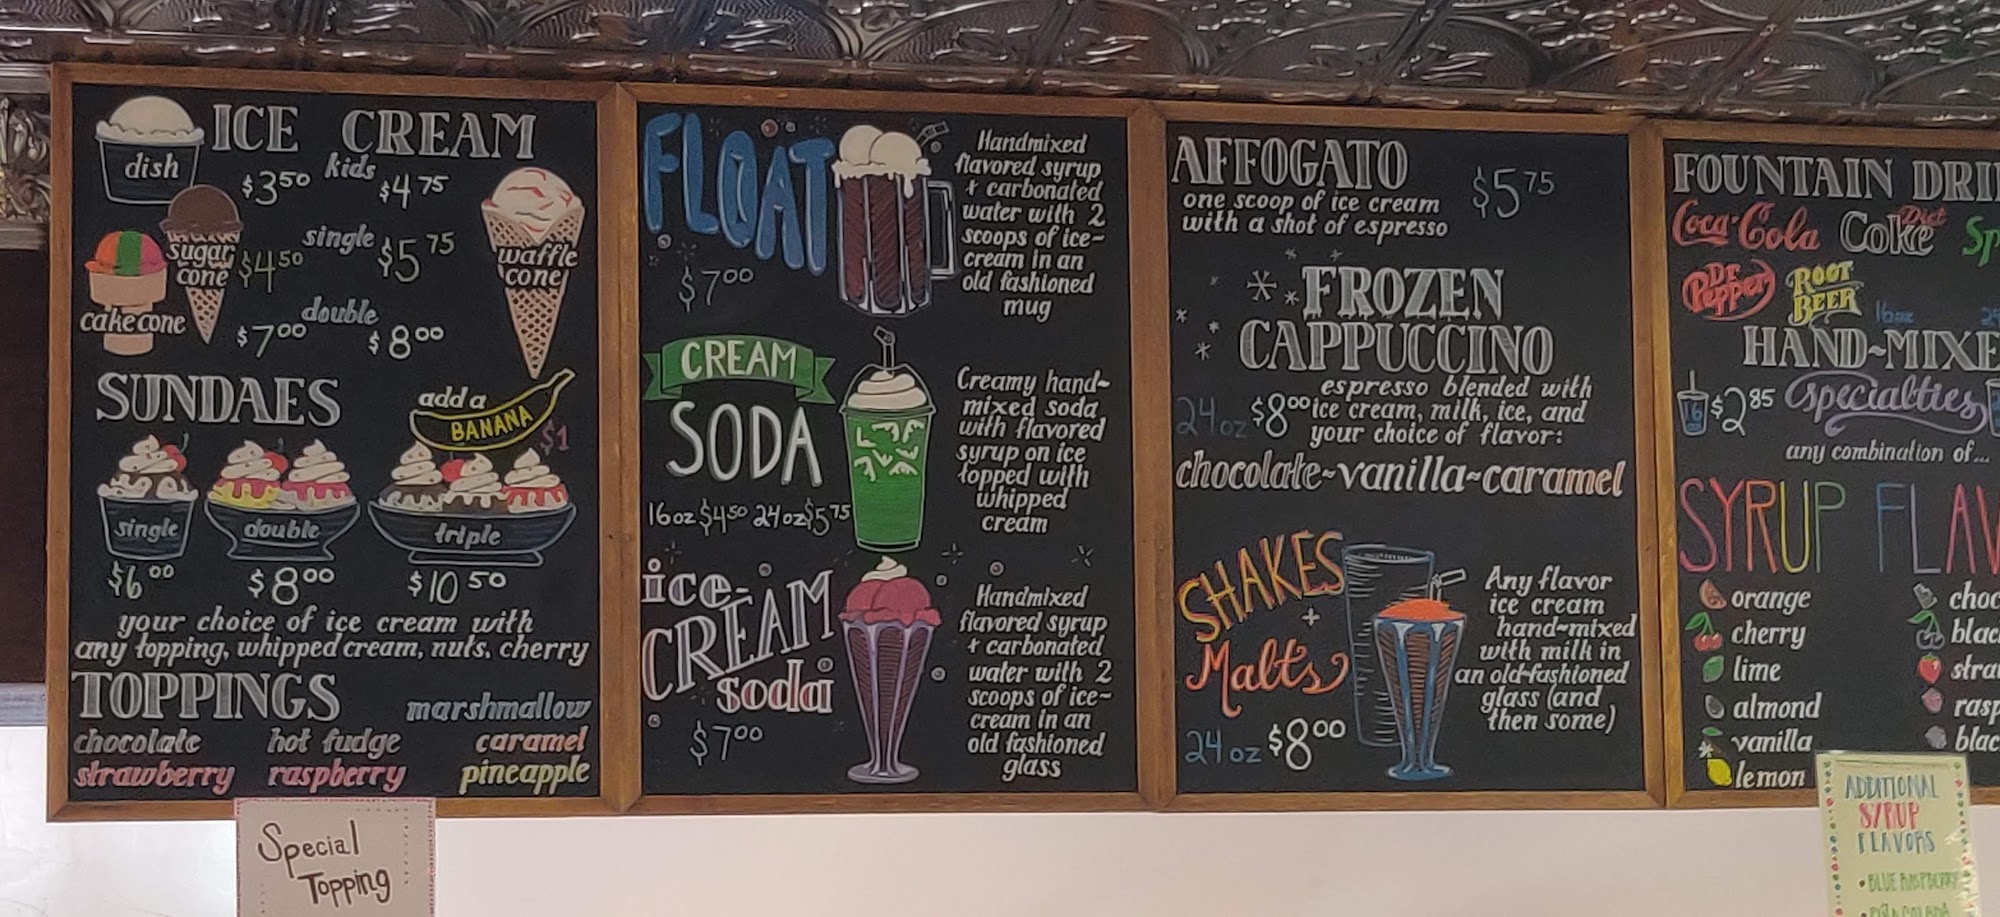 ICE CREAM
dish
kids
$3 50 $4 75
sugar cone
single
$4 50 $5 75
waffle cone
cake cone
double
$7 00 $8 00
SUNDAES
add a
BANANA $1
single double triple
$6 00 $8 00 $10 50
your choice of ice cream with
any topping, whipped cream, nuts, cherry
TOPPINGS marshmallow
chocolate hot fudge caramel
strawberry raspberry pineapple
Special
Topping
FLOAT
$7 00
Handmixed
flavored syrup
+ carbonated
water with 2
scoops of ice-
cream in an
old fashioned
mug
CREAM
SODA
16oz $4 50 24oz $5 75
Creamy hand-
mixed soda
with flavored
syrup on ice
topped with
whipped
cream
ice-
CREAM
soda
$7 00
Handmixed
flavored syrup
+ carbonated
water with 2
scoops of ice-
cream in an
old fashioned
glass
AFFOGATO $5 75
one scoop of ice cream
with a shot of espresso
FROZEN
CAPPUCCINO
espresso blended with
24oz $8 00 ice cream, milk, ice, and
your choice of flavor:
chocolate~vanilla~caramel
SHAKES
+
Malts
24 oz $8 00
Any flavor
ice cream
hand-mixed
with milk in
an old-fashioned
glass (and
then some)
FOUNTAIN DRI
Coca-Cola Diet Coke Sp
Dr Pepper ROOT BEER
16oz
HAND~MIXE
16 $2 85 specialties
any combination of...
SYRUP FLAV
orange choc
cherry blac
lime stra
almond rasp
vanilla blac
lemon
ADDITIONAL
SYRUP
FLAVORS
• BLUE RASPBERRY
• PIÑA COLADA